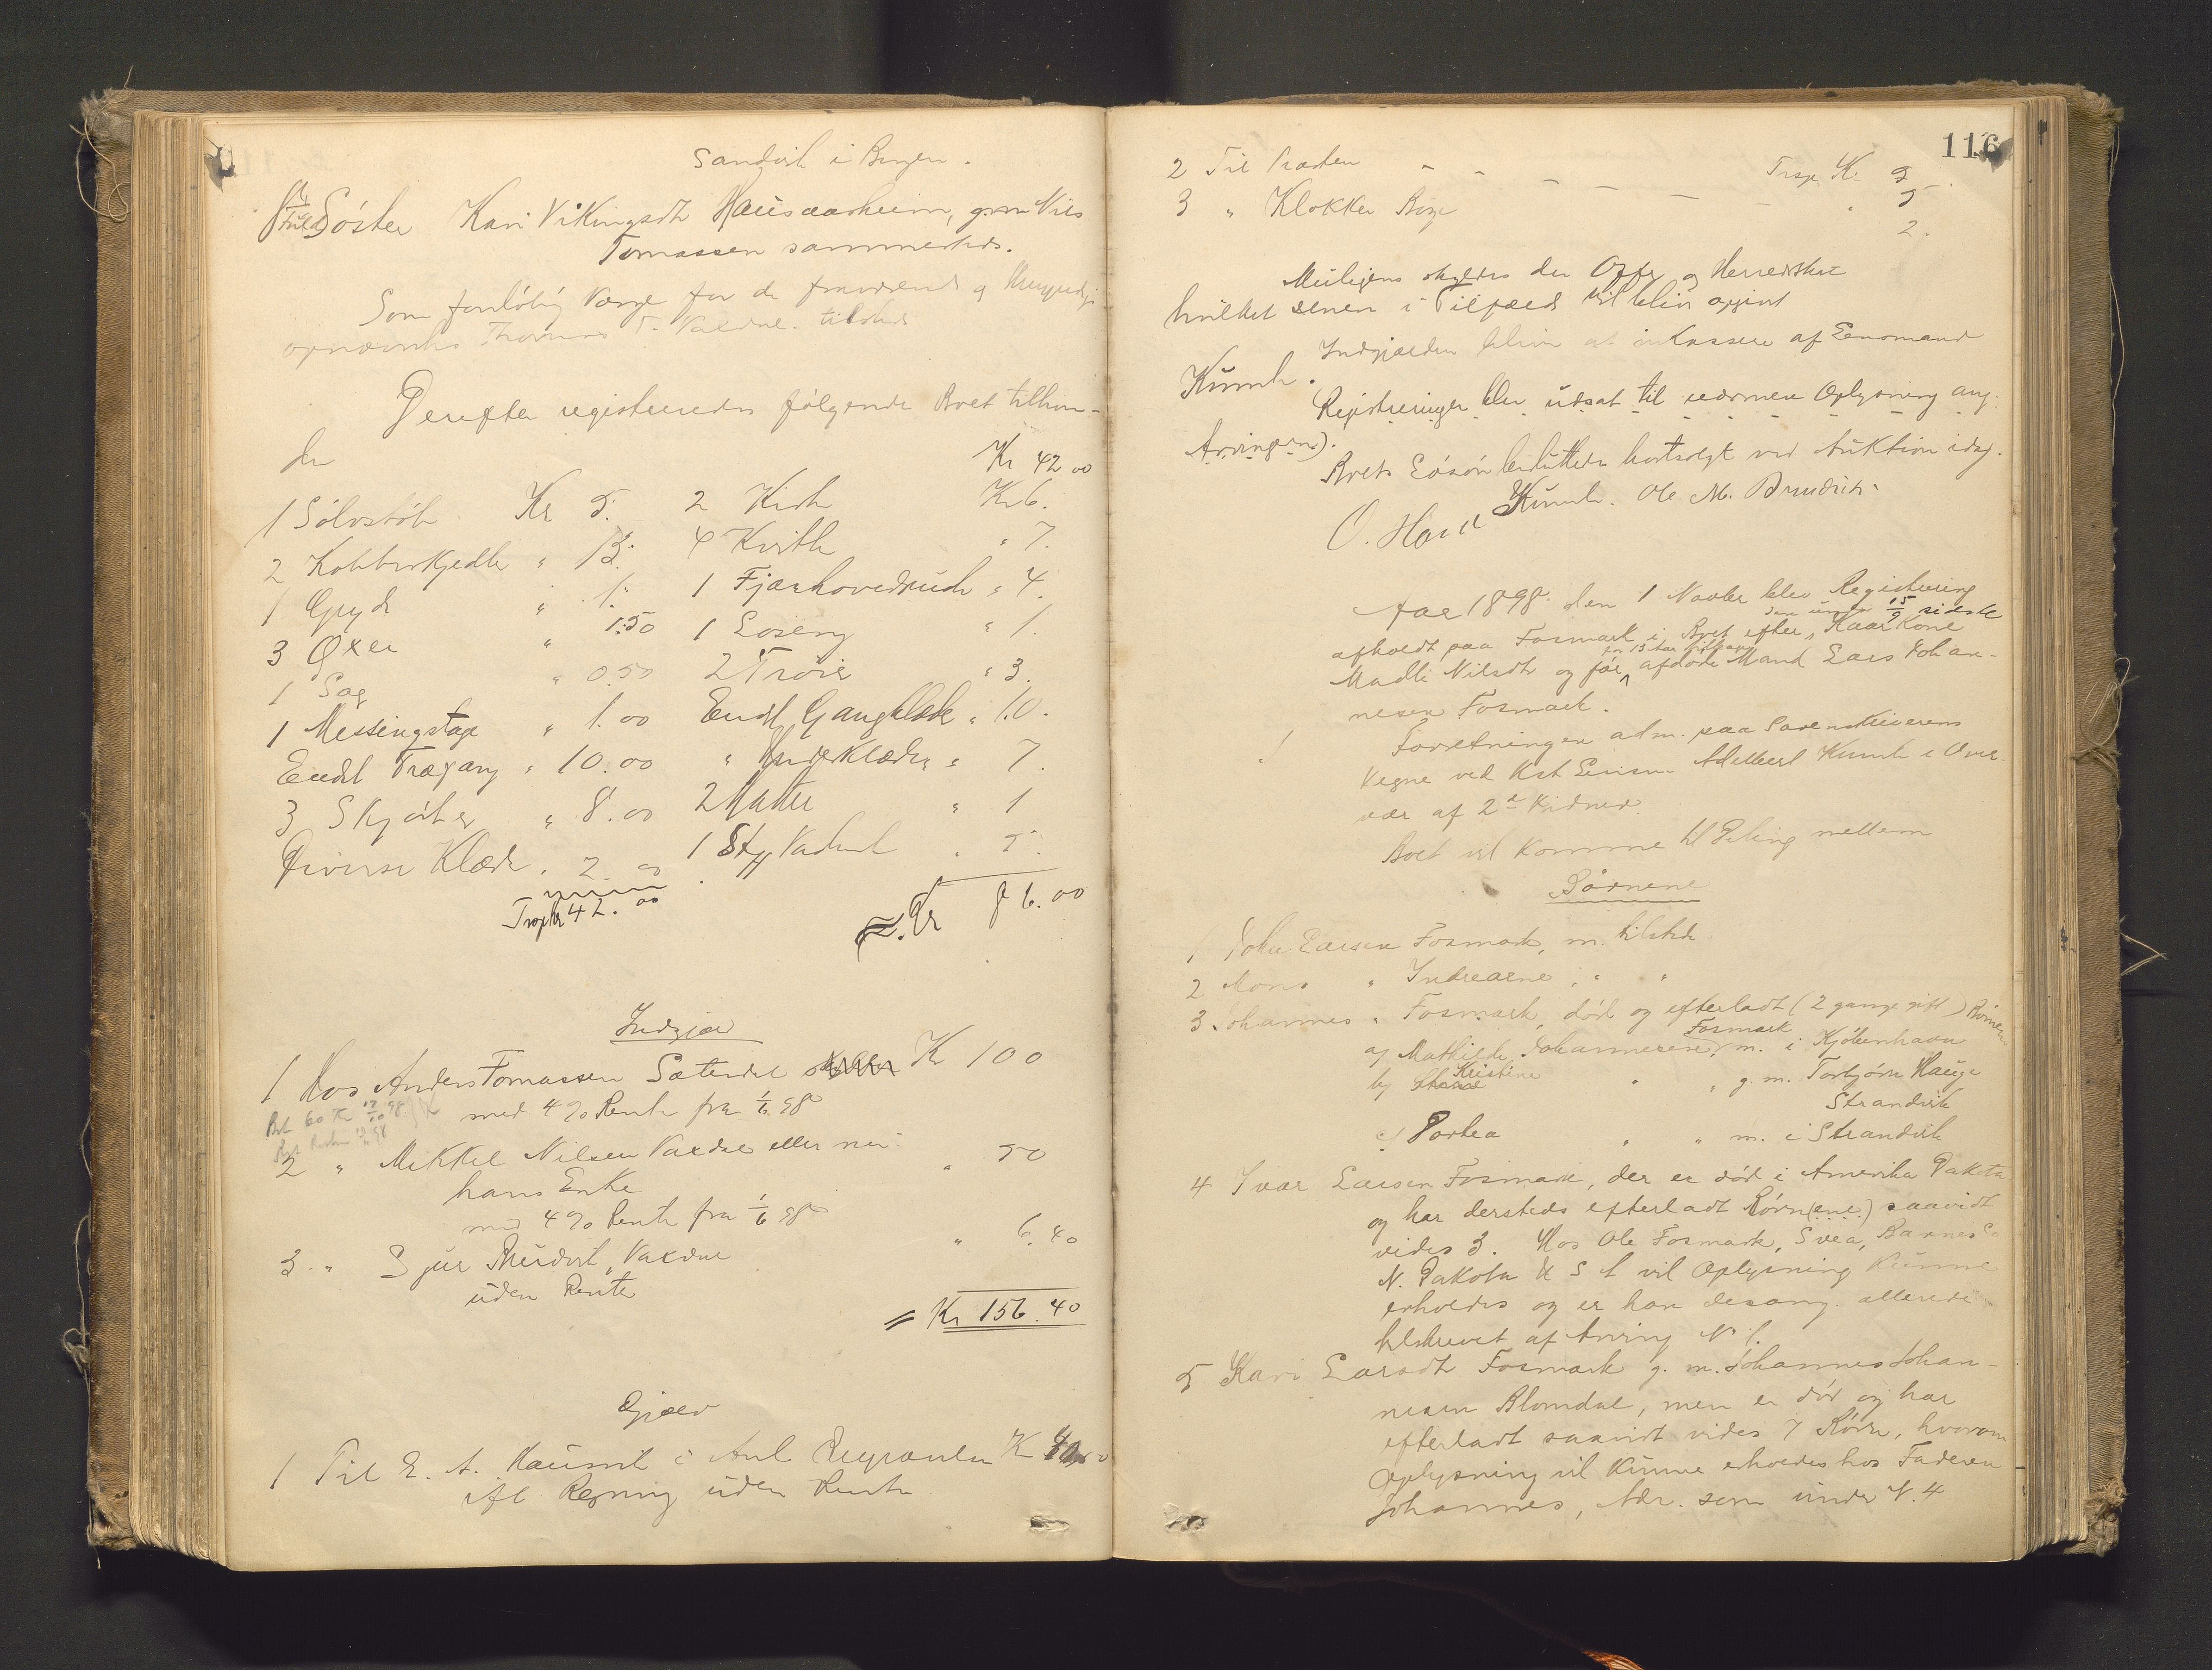 Sandvik i Bergen.
Søster Kari Vikingsdtr Hausaarheim, g. m. Nils
Tomassen sammesteds.
Som foreløbig Værge for de fraværende og
opnævntes Thomas T. Vaxdal. tilstede
Derefter registreredes følgende Boet tilhøren-
de
Kr 42 00
1 Sølvstøb Kr 5. 2 Kister Kr 6.
2 Kobberkjedler " 13. 4 " 7.
1 Gryde " 1. 1 " 4.
3 Øxer " 1.50 1 " 1.
1 Sag " 0.50 2 Trøier " 3.
1 Messingstage " 1.00 Endel Gangklæder " 10.
Endel Træfang " 10.00 " Underklæder " 7.
3 Skjørter " 8.00 2 Hatter " 1
Diverse Klæder . 2. 00 1 Stk Vadmel . 5.
Transp Kr 42. 00
Kr 86.00
Indgjæld
1 Hos Anders Tomassen Sætendal Kr 100
med 4 % Rente fra 1/6 98
Bet 60 Kr 17/10 98
2 " Mikkel Nilsen Vaxdal eller nu " 50
hans Enke
med 4 % Rente fra 1/6 98
3 " Sjur Vaxdal " 6.40
uden Rente
= Kr 156.40
Gjæld
1 Til E. A. i Anl Begravelsen Kr
ifl Regning uden Rente
116
2 Til Præsten - - - - - - Trsp Kr 5.
3 " Klokker Boge - - " 2.
Muligens skyldes der Offer og Herredskat
hvilket senere i Tilfælde vil bliver opgivet
Indgjælden bliver at inkassere af Lensmand
Kunch.
Registreringen blev udsat til nærmere Oplysning ang.
Arvingerne).
Boets Løsøre besluttedes bortsolgt ved Auktion idag.
Kunch. Ole M.
Aar 1898 den 1 Novbr blev Registrering
den under 15/9 sidste
afholdt paa Fosmark i Boet efter Kaarkone
for 13 Aar
Madli Nilsdtr og før afdøde Mand Lars Johan-
nesen Fosmark.
Forretningen adm. paa Sorenskriverens
Vegne ved Kst Lensm. Adelbert Kunch i Over-
vær af 2de Vidner.
Boet vil komme til Deling mellem
Børnene
1 John Larsen Fosmark, m. tilstede
2 Mons " Indrearne, " "
3 Johannes " Fosmark, død og efterladt (2 gange gift) Børnene
a) Mathilde Johannesen Fosmark, m. i Kjøbenhavn
b) Kristine " " g. m. Torbjørn Hauge
Strandvik
c) Dortea " " m. i Strandvik
4 Ivar Larsen Fosmark, der er død i Amerika Dakota
og har dersteds efterladt Børn(ene) saavidt
vides 3. Hos Ole Fosmark, Svea, Barnes Co
N. Dakota U S A vil Oplysning kunne
erholdes og er han desang. allerede
tilskrevet af Arving No 1.
5 Kari Larsdtr Fosmark g. m. Johannes Johan-
nesen Blomdal, men er død og har
efterladt saavidt vides 7 Børn, hvorom
Oplysning vil kunne erholdes hos Faderen
Johannes, Adr. som under N. 4